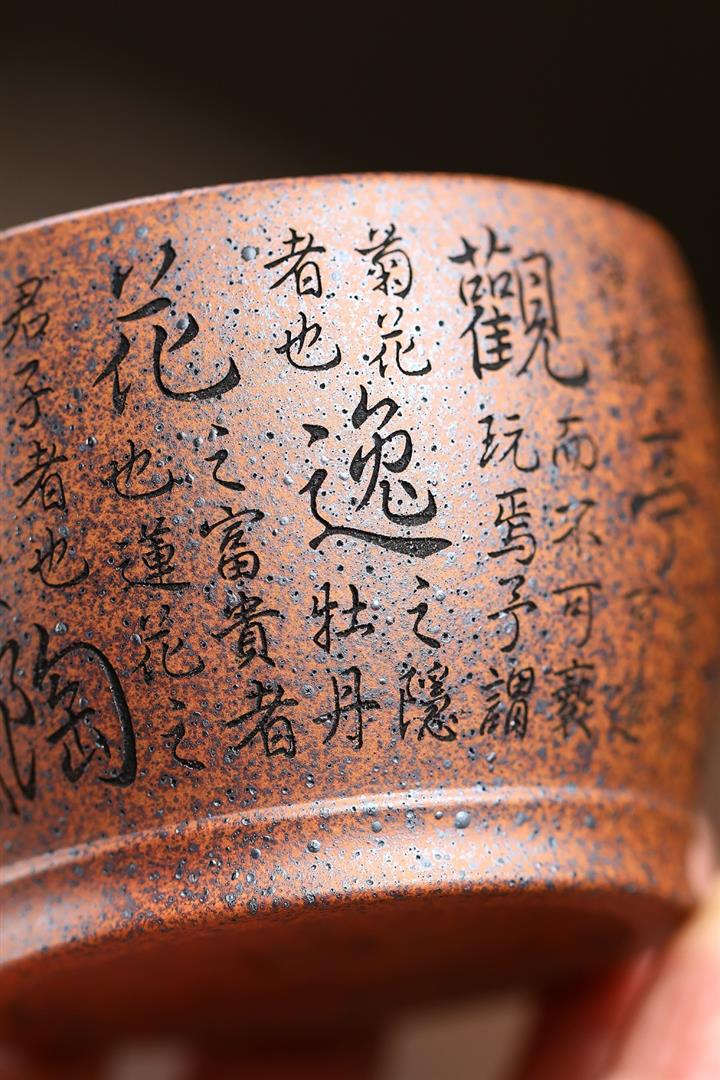 亭
觀
而不可褻
玩焉予謂
菊花
之隱
逸
者也
牡丹
花
之富貴者
也蓮花之
君子者也
陶